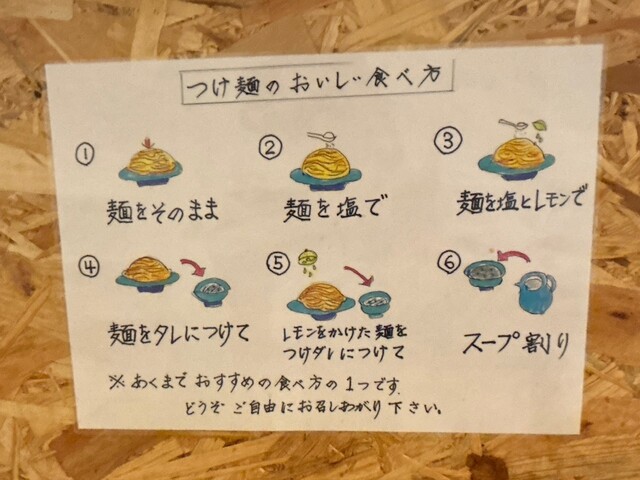 つけ麺のおいしい食べ方
①
麺をそのまま
②
麺を塩で
③
麺を塩とレモンで
④
麺をタレにつけて
⑤
レモンをかけた麺を
つけダレにつけて
⑥
スープ割り
※あくまでおすすめの食べ方の1つです。
どうぞご自由にお召しあがり下さい。